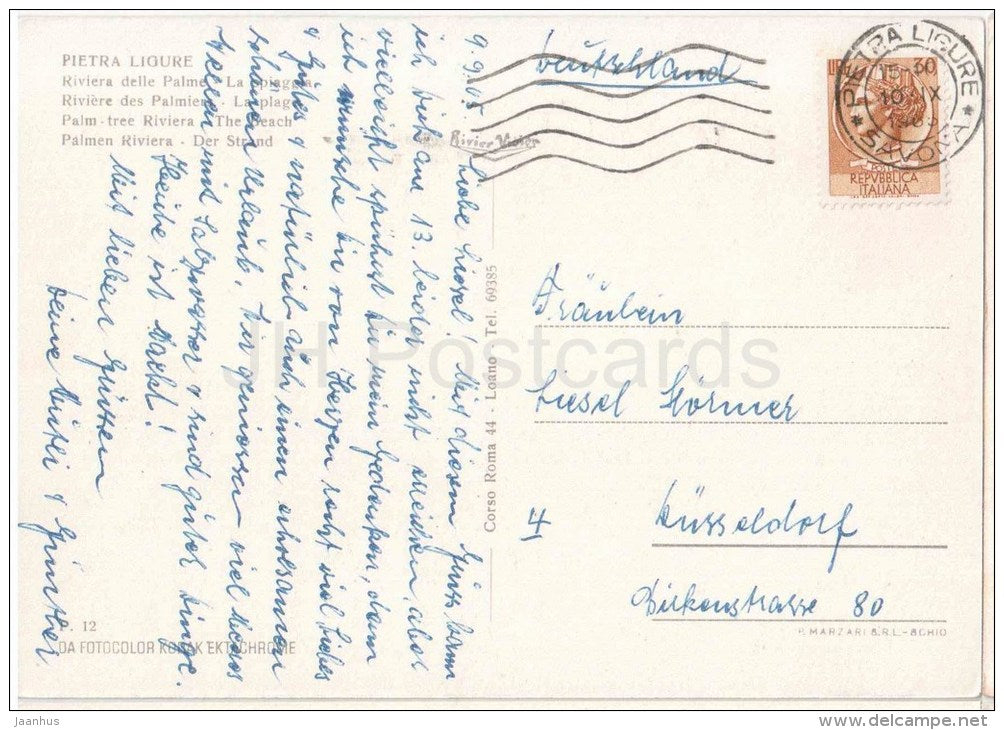 PIETRA LIGURE
Riviera delle Palme - La spiaggia
Rivière des Palmiers - La plage
Palm-tree Riviera - The Beach
Palmen Riviera - Der Strand
9.9.65
Liebe Liesel! Mit diesem Gruss kann
ich dich am 13. leider nicht erreichen, aber
vielleicht spührst du mein Gedenken, denn
ich wünsche dir von Herzen recht viel Liebes
& Gutes & natürlich auch einen erholsamen
schönen Urlaub. Wir geniessen viel Meeres
Wellen und Salzwasser & sind guter Dinge.
Heute ist Markt!
Mit lieben Grüssen
deine & Günther
P. 12
DA FOTOCOLOR KODAK EKTACHROME
Corso Roma 44 - Loano - Tel. 69385
Deutschland
PIETRA LIGURE
* SAVONA *
15
10 IX
30
POSTE
REPVBBLICA
ITALIANA
Fräulein
Liesel Körner
4 Düsseldorf
Birkenstrasse 80
P. MARZARI S.R.L. - SCHIO
JH Postcards
jaanhus
www.delcampe.net